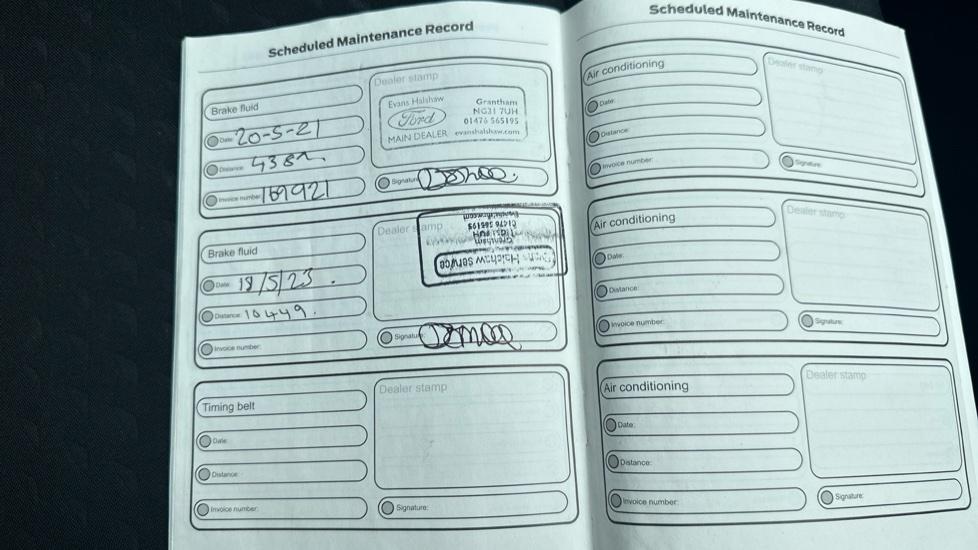 Scheduled Maintenance Record
Brake fluid
Date: 20-5-21
Distance:
Invoice number: 169921
Dealer stamp
Evans Halshaw
Ford
MAIN DEALER
Grantham
NG31 7UH
01476 565195
evanshalshaw.com
Signature:
Brake fluid
Date: 18/5/23.
Distance: 10449.
Invoice number:
Dealer stamp
Evans Halshaw service
Grantham
NG31 7UH
01476 565195
Evanshalshaw.com
Signature:
Timing belt
Date:
Distance:
Invoice number:
Dealer stamp
Signature:
Scheduled Maintenance Record
Air conditioning
Date:
Distance:
Invoice number:
Dealer stamp
Signature:
Air conditioning
Date:
Distance:
Invoice number:
Dealer stamp
Signature:
Air conditioning
Date:
Distance:
Invoice number:
Dealer stamp
Signature: